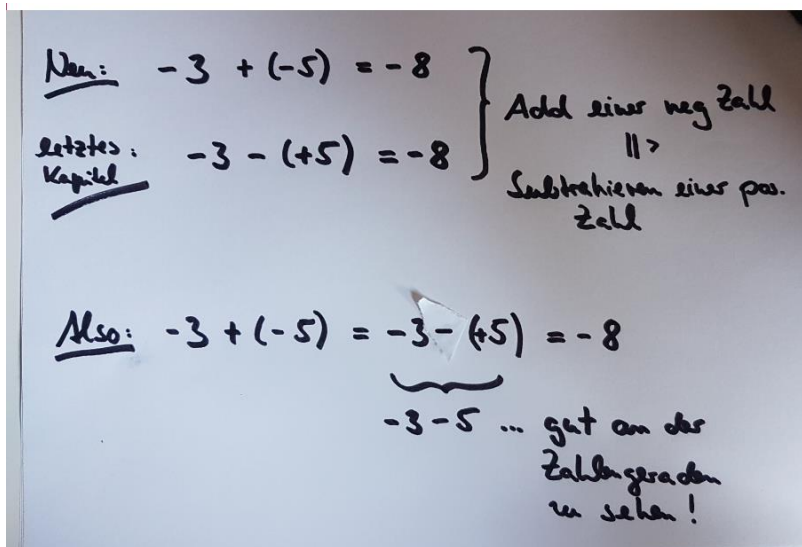 Neu: -3 + (-5) = -8
letztes: -3 - (+5) = -8
Kapitel
Add einer neg Zahl
||>
Subtrahieren einer pos.
Zahl
Also: -3 + (-5) = -3 - (+5) = -8
-3-5 ... gut an der
Zahlengeraden
zu sehen!